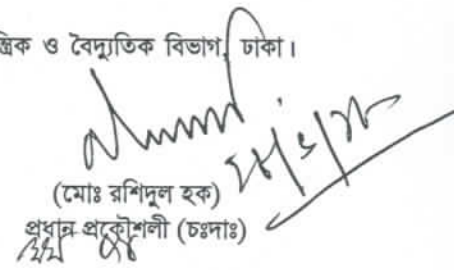 ন্ত্রিক ও বৈদ্যুতিক বিভাগ, ঢাকা।
(মোঃ রশিদুল হক)
প্রধান প্রকৌশলী (চঃদাঃ)